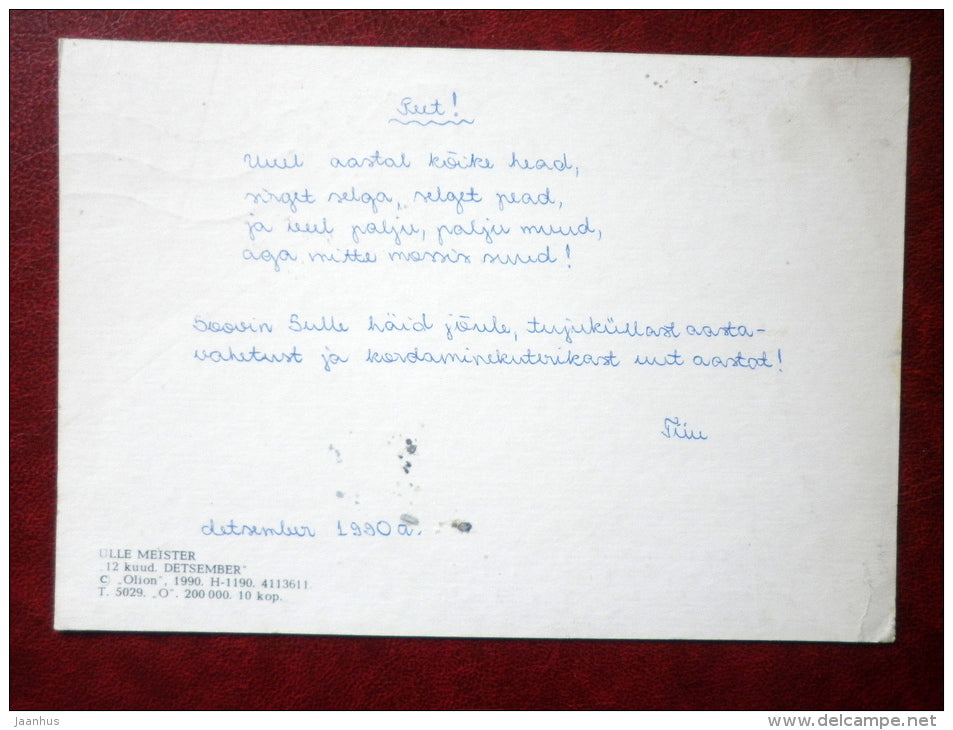 Reet!
Uuel aastal kõike head,
sirget selga, selget pead,
ja veel palju, palju muud,
aga mitte mossis suud!
Soovin Sulle häid jõule, tujuküllast aasta-
vahetust ja kordaminekuterikast uut aastat!
Tiiu
detsember 1990 a.
ÜLLE MEISTER
"12 kuud. DETSEMBER"
© „Olion", 1990. H-1190. 4113611.
T. 5029. „O". 200 000. 10 kop.
jaanhus
www.delcampe.net